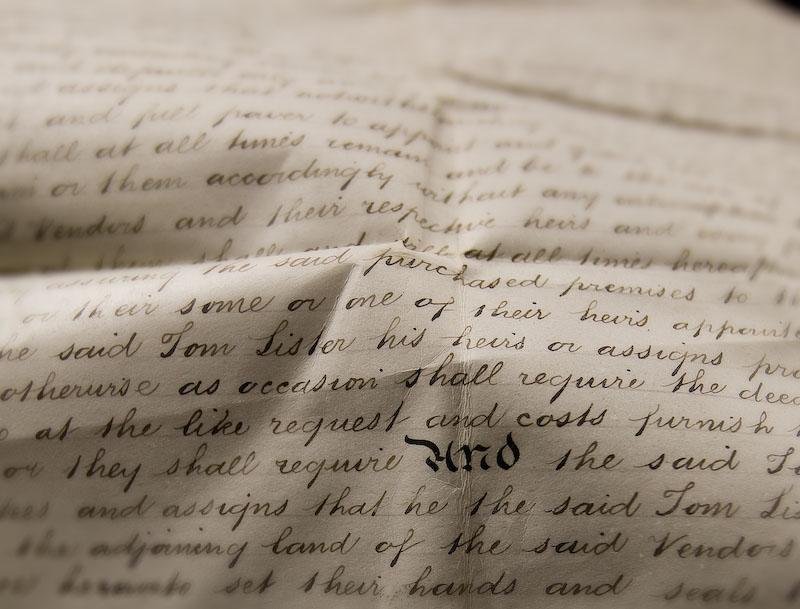 assigns that
and full power to
shall at all times remain and be
or them accordingly without any
Vendors and their respective heirs and
shall and will at all times
assuring the said purchased premises to
or their some or one of their heirs
he said Tom Lister his heirs or assigns
otherwise as occasion shall require the
at the like request and costs furnish
or they shall require And the said
and assigns that he the said Tom Lis
the adjoining land of the said Vendors
hereunto set their hands and seals